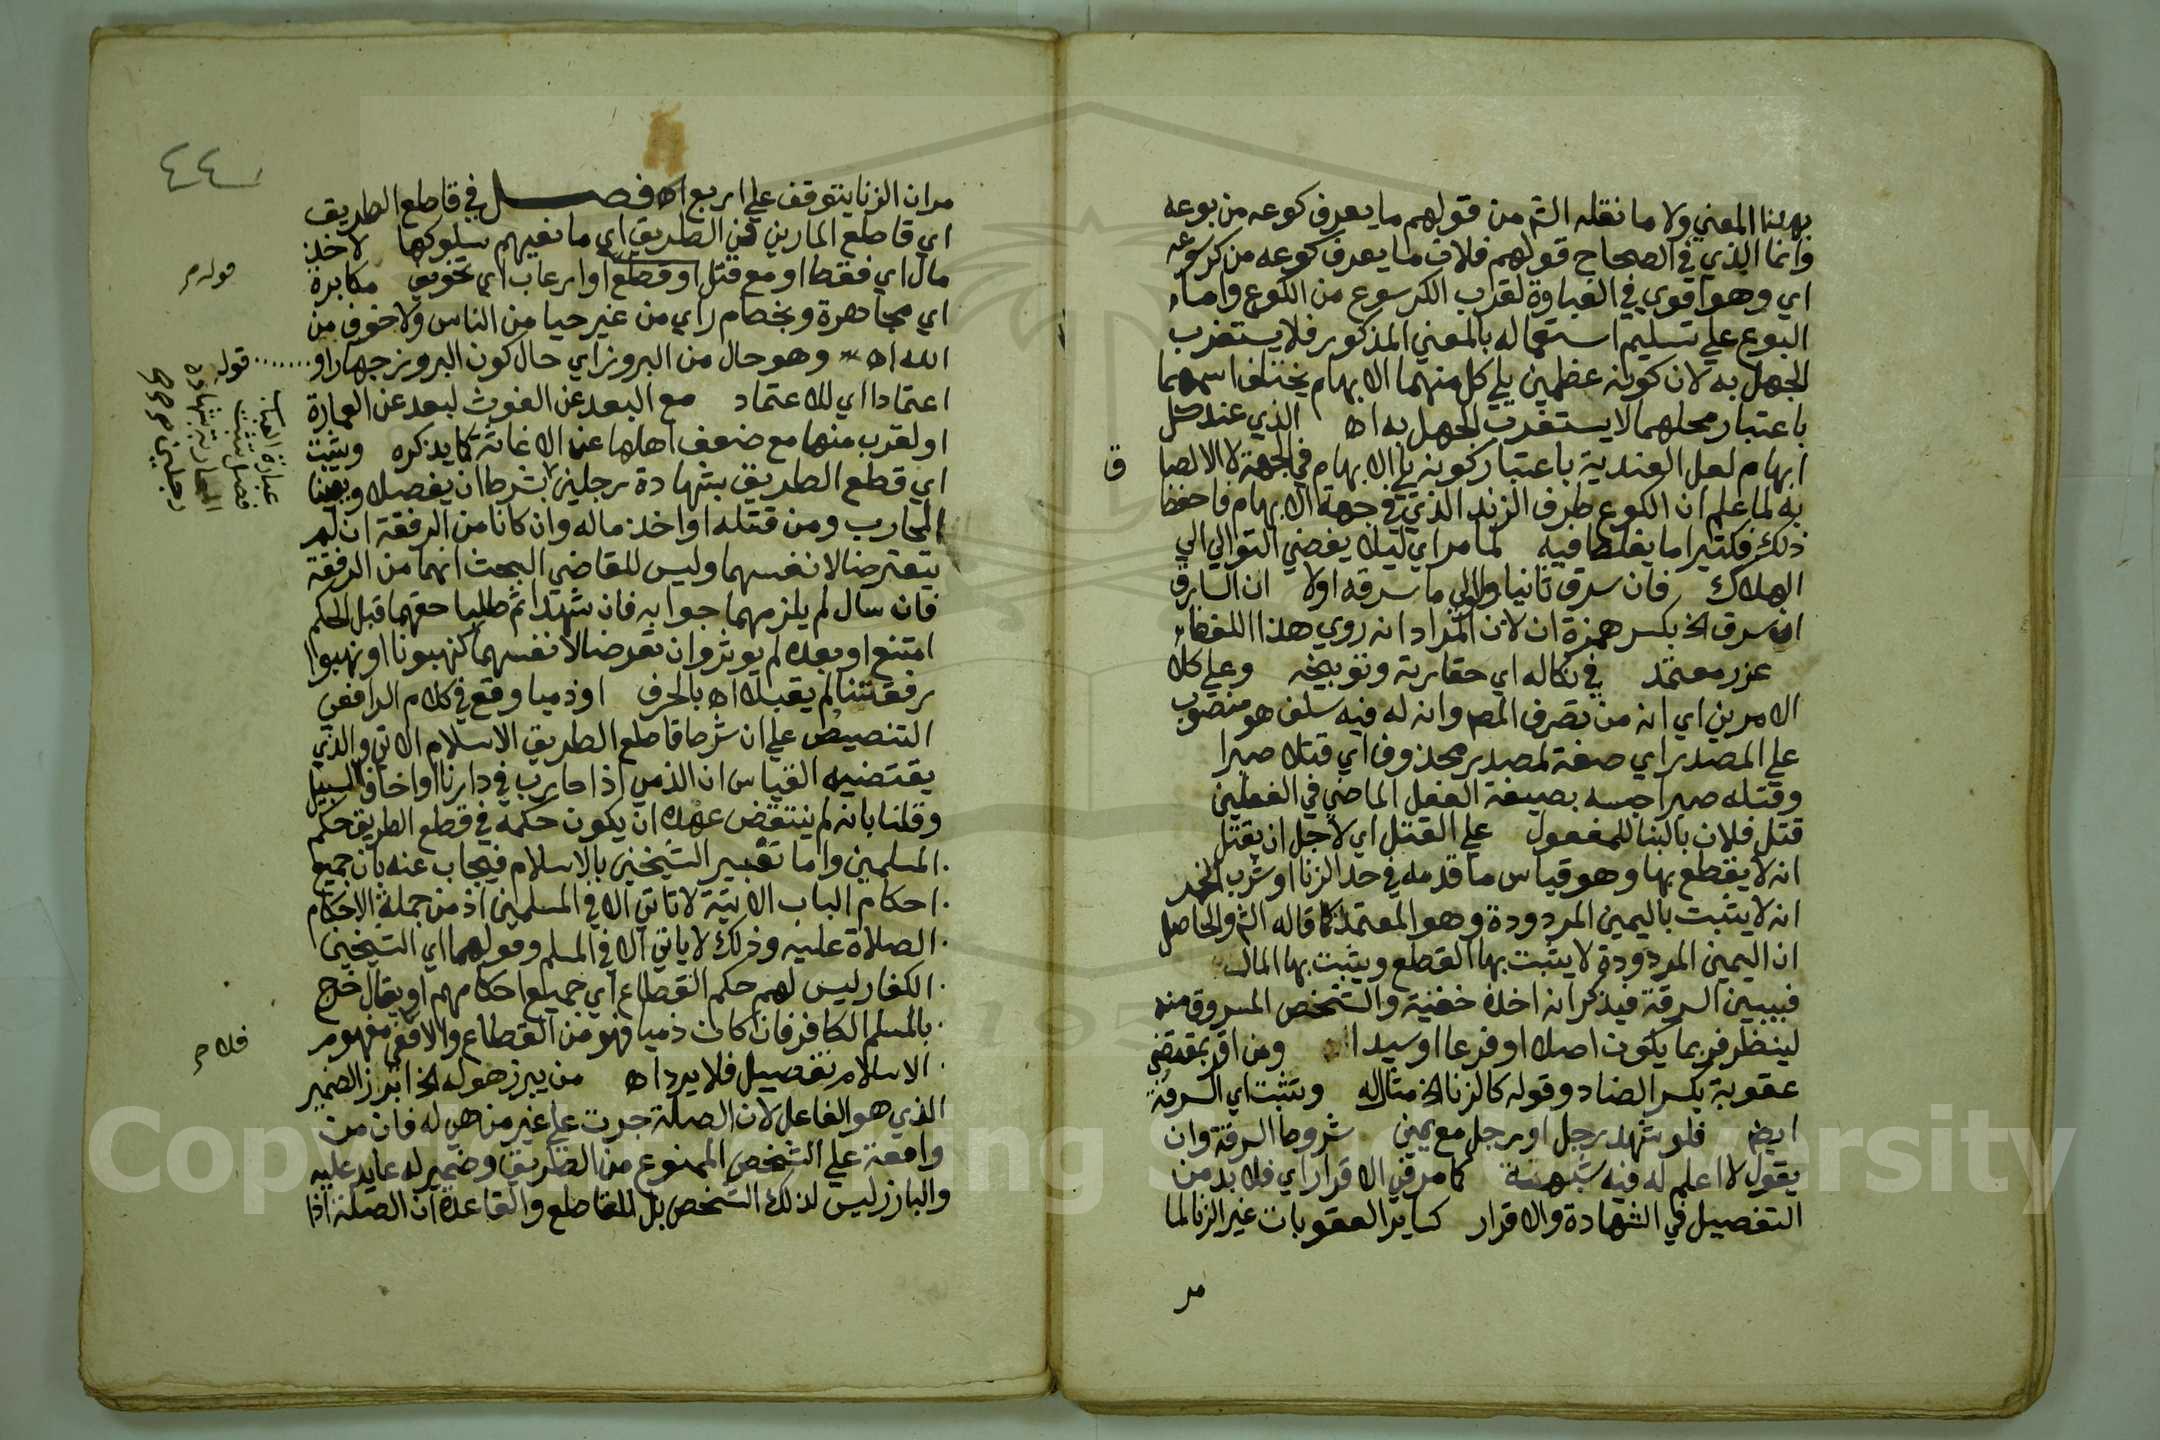 بهذا المعني ولا ما نقله الشم من قولهم ما يعرف كوعه من بوعه
وانما الذي في الصحاح قولهم فلان ما يعرف كوعه من كرسوعه
اي وهو اقوي في الغباوة لقرب الكرسوع من الكوع واما
البوع علي تسليم استعماله بالمعني المذكور فلا يستغرب
الجهل به لان كونه عظمين يلي كل منهما الابهام يختلف اسمهما
باعتبار محلهما لا يستغرب الجهل به اه الذي عند كل
ابهام لعل العندية باعتبار كونه يلي الابهام في الجهة لا الالصا ق
به لما علم ان الكوع طرف الزند الذي في جهة الابهام فاحفظ
ذلك فكثيرا ما يغلط فيه لما مر اي ليلا يفضي التوالي الي
الهلاك فان سرق ثانيا والي ما سرقه اولا ان السارق
ان سرق الخ بكسر همزة ان لان المراد انه روي هذا اللفظ
عزر معتمد في نكاله اي حقارته وتوبيخه وعلي كلا
الامرين اي انه من تصرف المص وانه له فيه سلف هو منصوب
علي المصدر اي صفة لمصدر محذوف اي قتلا صبرا
وقتله صبرا حبسه بصيغة الفعل الماضي في الفعلين
قتل فلان بالبنا للمفعول علي القتل اي لاجل ان يقتل
انه لا يقطع بها وهو قياس ما قدمه في حد الزنا او شرب الخمر
انه لا يثبت باليمين المردودة وهو المعتمد كما قاله الشم والحاصل
ان اليمين المردودة لا يثبت بها القطع ويثبت بها المال
فيبين السرقة فيذكر انه اخذ خفية والشخص المسروق منه
لينظر فربما يكون اصلا او فرعا او سيدا اه ومن اقر بمقتضي
عقوبة بكسر الضاد وقوله كالزنا الخ مثال له وتثبت اي السرقة
ايض فلو شهد رجل او رجل مع يمين شروط السرقة وان
يقول لا اعلم له فيه شبهة كما مر في الاقرار اي فلا بد من
التفصيل في الشهادة والاقرار كساير العقوبات غير الزنا لما
مر
٤٤
مر ان الزنا يتوقف علي اربع اه فصل في قاطع الطريق
اي قاطع المارين عن الطريق اي مانعهم سلوكها لاخذ
مال اي فقط او مع قتل او قطع او ارعاب اي تخويف مكابرة
اي مجاهرة وبخصام راي من غير حيا من الناس ولا خوف من
الله اه وهو حال من البروز اي حال كون البروز جهارا و
اعتمادا اي للاعتماد مع البعد عن الغوث لبعد عن العمارة
او لقرب منها مع ضعف اهلها عن الاغاثة كما يذكره ويثبت
اي قطع الطريق بشهادة رجلين لا بشرط ان يفصلا ويعينا
المحارب ومن قتله او اخذ ماله وان كانا من الرفقة ان لم
يتعرضا لانفسهما وليس للقاضي البحث انهما من الرفقة
فان سال لم يلزمهما جوابه فان شهدا ثم طلبا حقهما قبل الحكم
امتنع او بعده لم يوثر وان تعرضا لانفسهما كنهبونا او نهبوا
رفقتنا لم يقبلا اه بالحرف او ذميا وقع في كلام الرافعي
التنصيص علي ان شرط قاطع الطريق الاسلام الاتي والذي
يقتضيه القياس ان الذمي اذا حارب في دارنا او اخاف السبيل
وقلنا بانه لم ينتقض عهده ان يكون حكمه في قطع الطريق حكم
المسلمين واما تعبير الشيخين بالاسلام فيجاب عنه بان جميع
احكام الباب الاتية لا تاتي الا في المسلمين اذ من جملة الاحكام
الصلاة عليه وذلك لا ياتي الا في المسلم وقولهما اي الشيخين
الكفار ليس لهم حكم القطاع اي جميع احكامهم او يقال خرج
بالمسلم الكافر فان كان ذميا فهو من القطاع والا ففي مفهوم
الاسلام تفصيل فلا يرد اه من يبرز هو له الخ ابرز الضمير
الذي هو الفاعل لان الصلة جرت علي غير من هي له فان من
واقعة علي الشخص الممنوع من الطريق وضمير له عايد عليه
والبارز ليس لذلك الشخص بل للقاطع والقاعدة ان الصلة اذا
قوله م
قوله
عبارة
فصل تثبت
المحاربة بشهادة
رجلين
Copy King S University